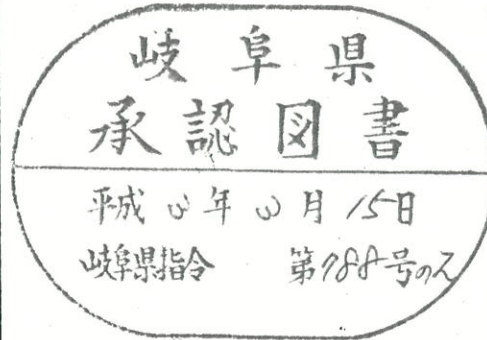 岐阜県
承認図書
平成3年3月15日
岐阜県指令 第788号の2